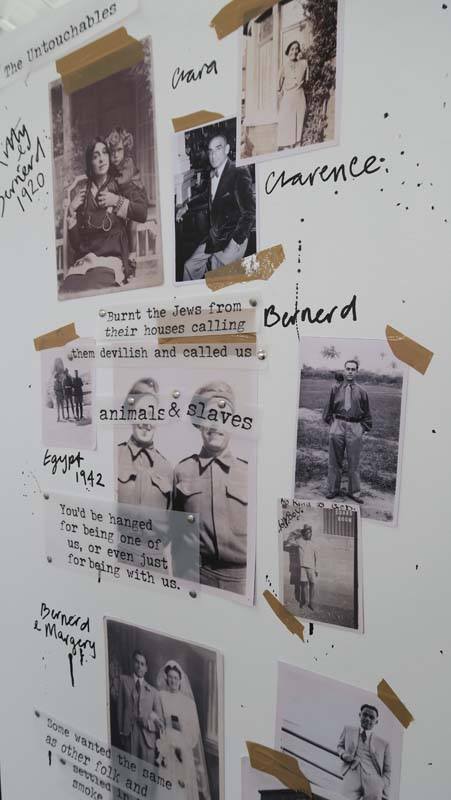 The Untouchables
Clara
&
Bernerd
1920
Clarence.
Burnt the Jews from
their houses calling
Bernerd
them devilish and called us
animals & slaves
Egypt
1942
You'd be hanged
for being one of
us, or even just
for being with us.
Bernerd
& Margery
Some wanted the same
as other folk and
settled in
smoke